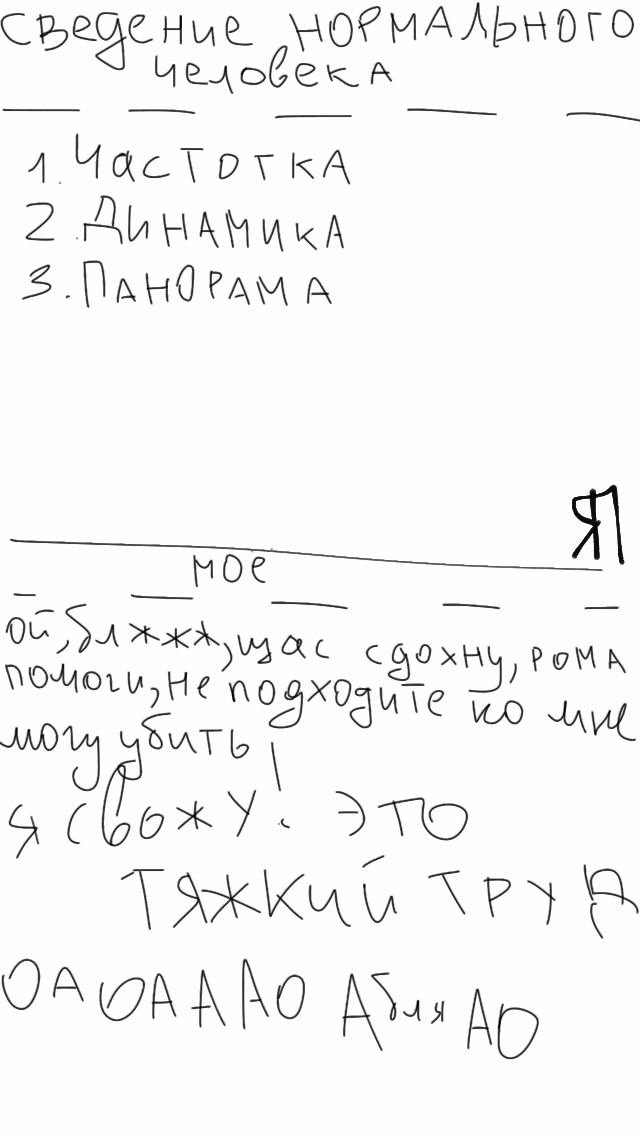 сведение НОРМАЛЬНОГО
человека
1. Частотка
2. Динамика
3. Панорама
ЯП
мое
ой, блжжж, щас сдохну, рома
помоги, не подходите ко мне
могу убить!
я свожу! это
тяжкий труд
ОАОАААО Абля АО